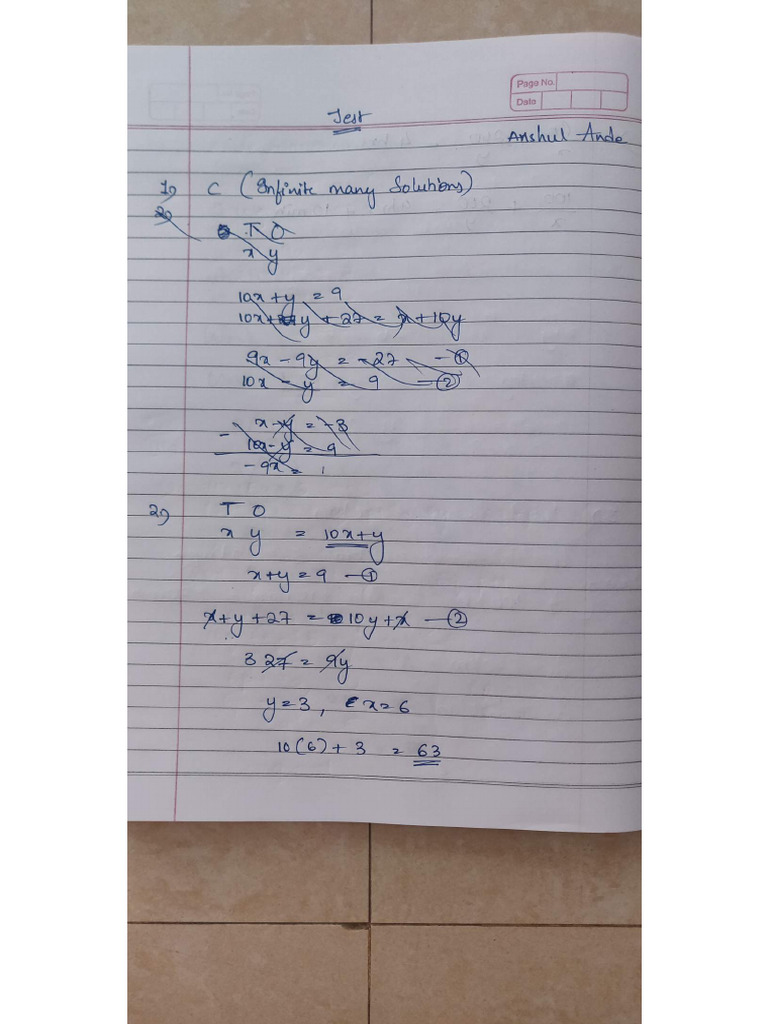 Page No.
Date
Test
Anshul Ande
1) C (Infinite many Solutions)
2)
T O
x y
10x + y = 9
10x + y + 27 = x + 10y
9x - 9y = -27 - ①
10x - y = 9 - ②
x - y = -3
- 10x - y = 9
- 9x =
2) T O
x y = 10x + y
x + y = 9 - ①
x + y + 27 = 10y + x - ②
3 27 = 9y
y = 3, x = 6
10(6) + 3 = 63